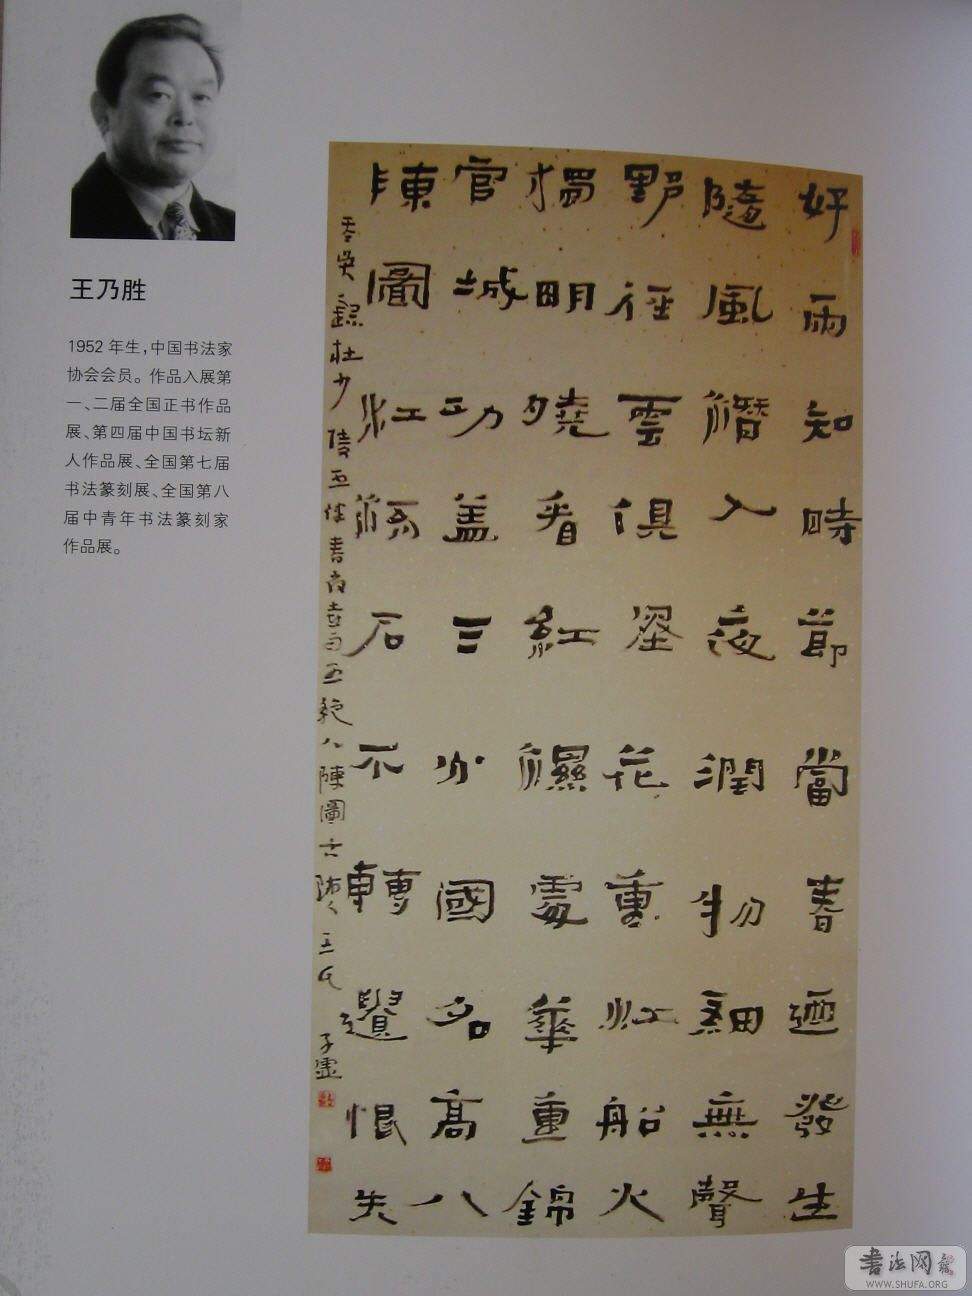 王乃胜
1952年生,中国书法家
协会会员。作品入展第
一、二届全国正书作品
展、第四届中国书坛新
人作品展、全国第七届
书法篆刻展、全国第八
届中青年书法篆刻家
作品展。
好雨知時節當春迺發生
隨風潛入夜潤物細無聲
野徑雲俱黑花重江船火
獨明曉看紅濕處華重錦
官城功盖三分國名高八
陳圖江流石不轉遺恨失
吞吳錄杜少陵五律春夜喜雨五絕八陳圖王氏子
书法网
WWW.SHUFA.ORG